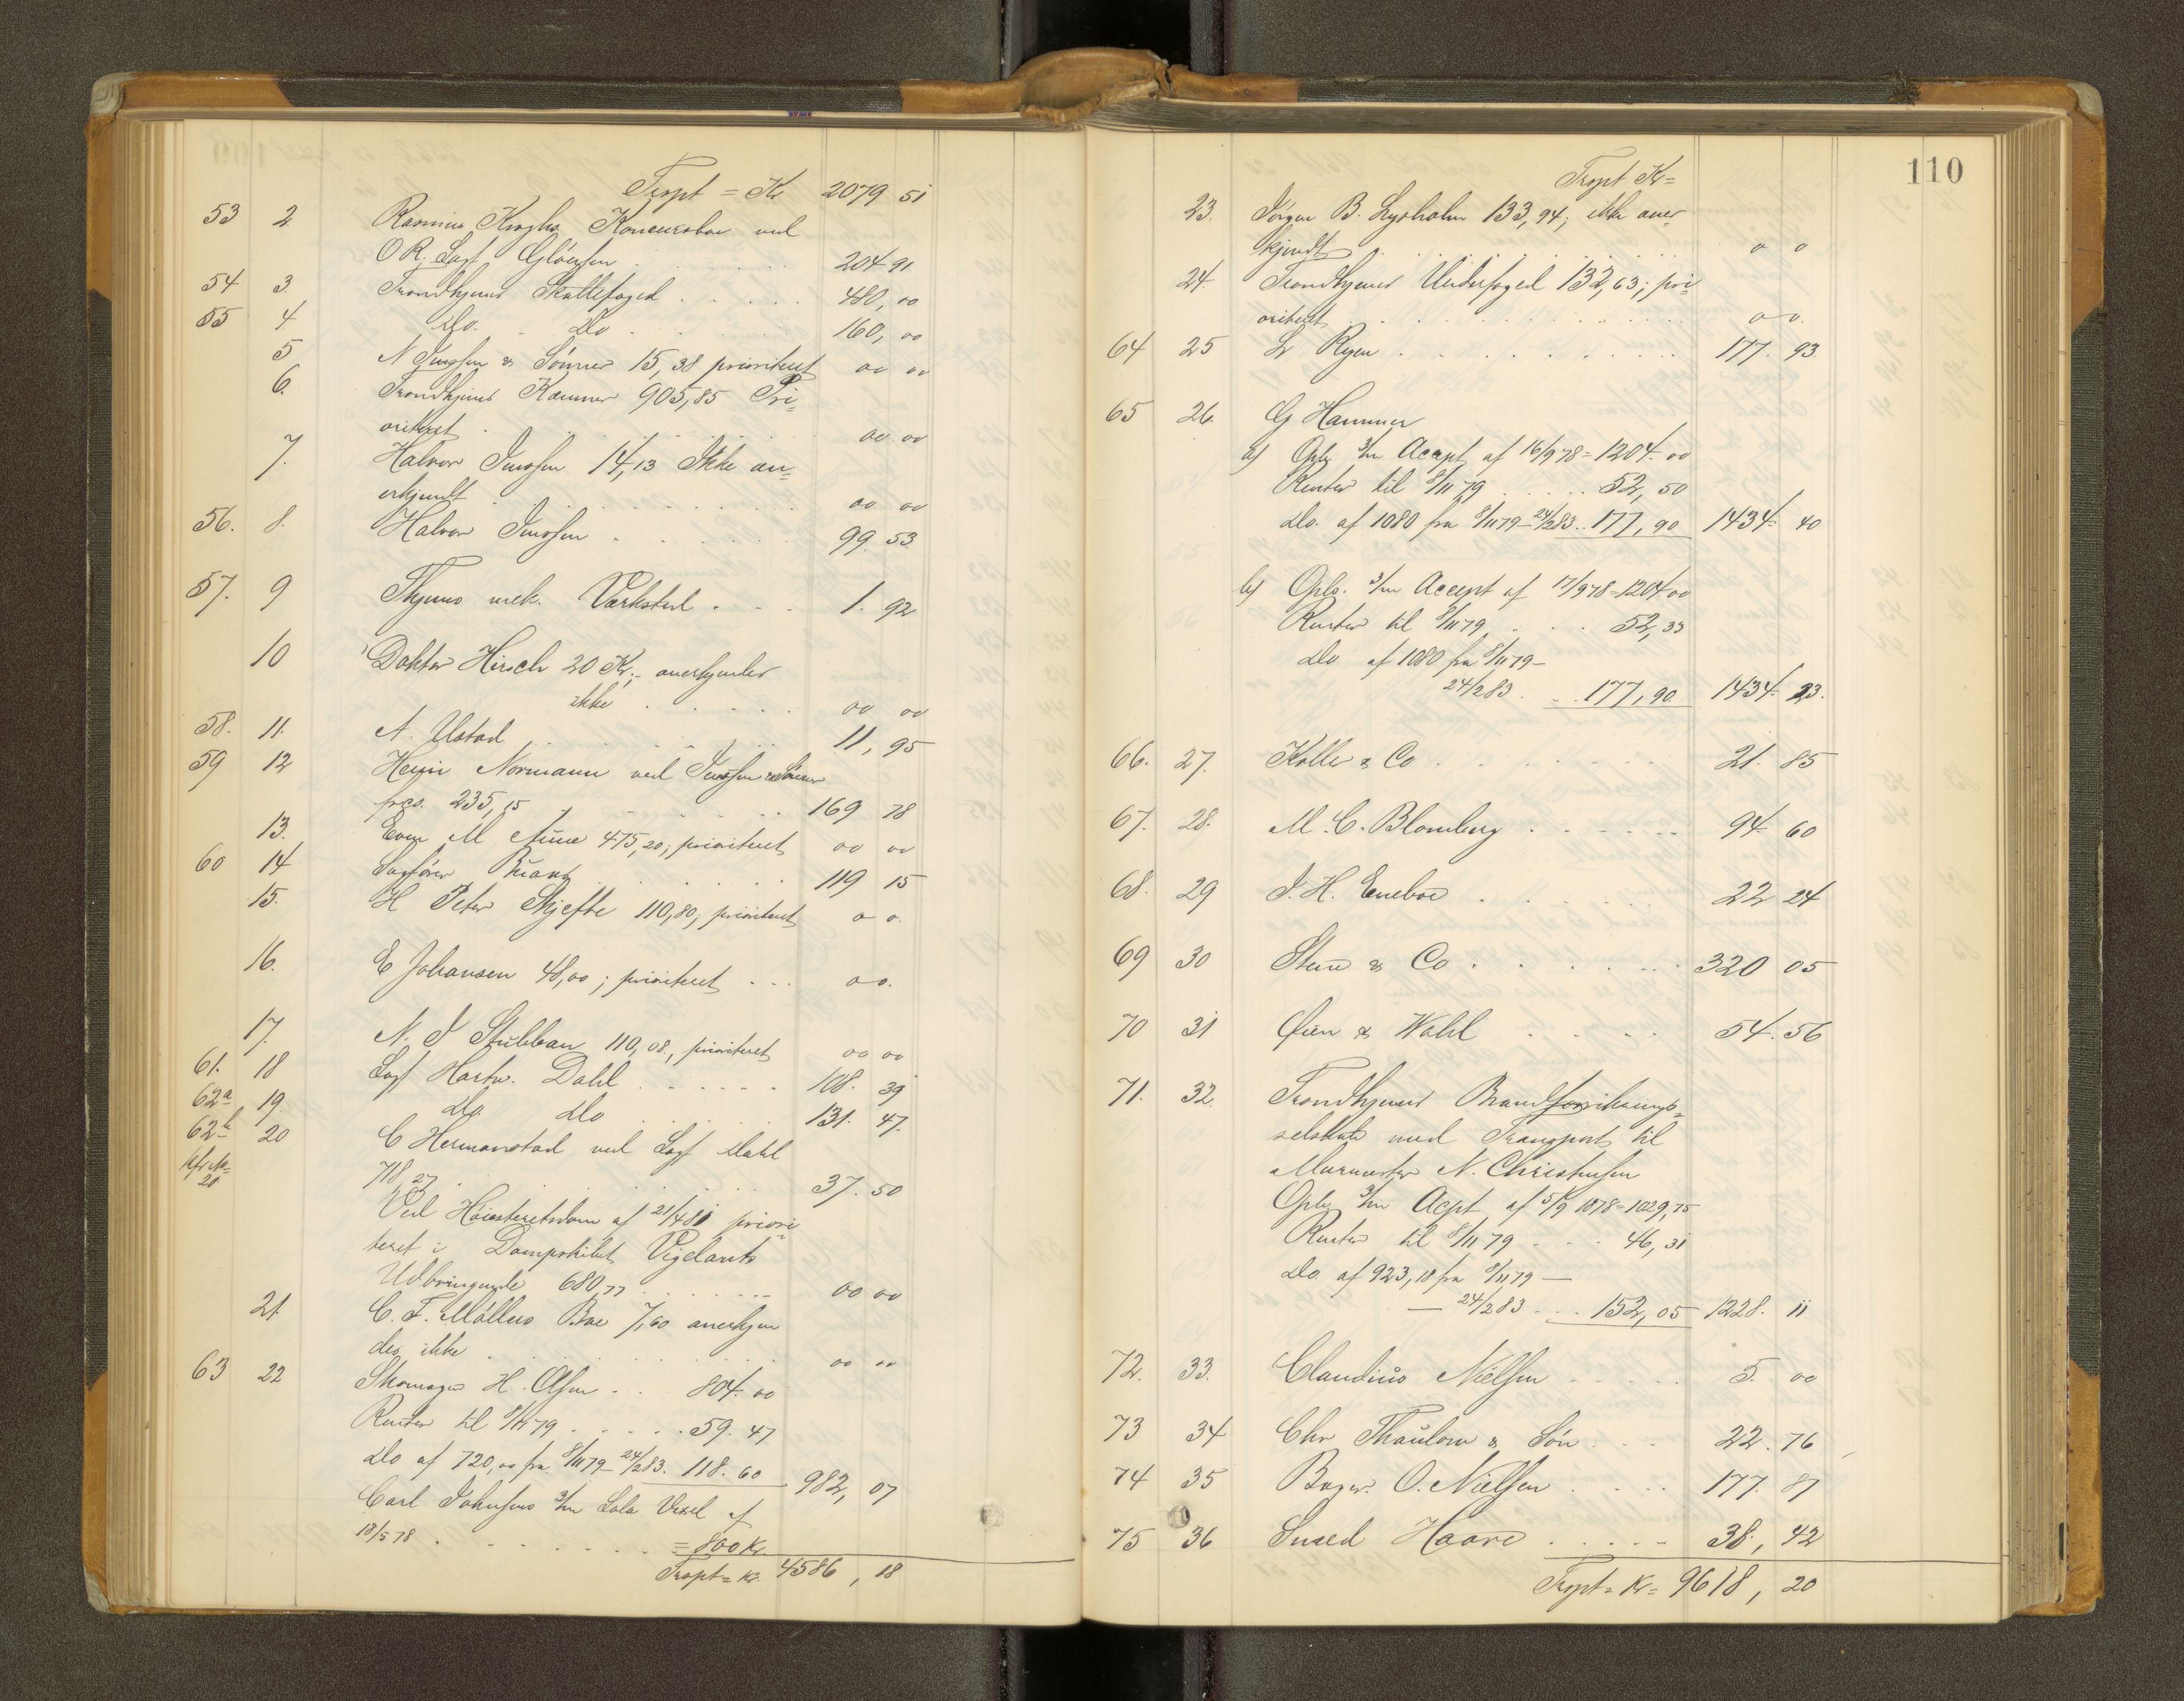 Trspt = Kr 2079 51
53 2 Rasmus Kroghs Koncursbo ved
O R. Sagf. Gløersen . . . . 204 91
54 3. Trondhjems Skattefoged . . . . . 480, 00
55 4 Do. - Do . . . . 160, 00
5 N Jenssen & Sönner 15,38 prioriteret 00 00
6. Trondhjems Kæmner 905,85 Pri=
oriteret . . . . . . . 00 00
7. Halvor Jenssen 14,13 Ikke an=
erkjendt . . . . . . . 00 00
56. 8. Halvor Jenssen . . . . . . 99. 53.
57. 9 Thjems mek. Værksted . . . 1. 92
10 Doktor Hirsch 20 Kr;- anerkjendes
ikke . . . . . 00 00
58. 11. A. Ustad . . . . . . 11, 95
59 12 Henr Normann ved Jenssen & Sönner
pcs. 235,15 . . . . . . 169 78
13. Even M Aune 475,20; prioriteret 00 00
60 14 Sagförer Buank . . . . . . 119 15
15. H Peter Skjefte 110,80; prioriteret 0 0.
16. E Johansen 48,00; prioriteret . . . 0 0.
17. N. J Stubban 110,08., prioriteret 00 00
61. 18 Sagf Hartv. Dahl . . . . . . 108. 39
62a 19 Do Do . . . . . . 131. 47.
62b 20 C Hermanstad ved Sagf Dahl
kfr No 20 718,27 . . . . . . . 37. 50
Ved Höiesteretsdom af 21/4 81 priori=
teret i Dampskibet Vigelants
Udbringende 680,77 . . . . . . . 00 00
21. C. F. Möllers Boe 7,60 anerkjen
des ikke . . . . . . . 00 00
63 22 Skomager H. Olsen . . 804. 00
Renter til 8/11 79 . . . . . 59. 47
Do af 720,00 fra 8/11 79 - 24/2 83. 118. 60 982, 07
Carl Johnsens 3/m Vexel af
18/5 78 . . . . . . . = 800 Kr
Trspt = Kr. 4586, 18
110
Trspt Kr=
23. Jörgen B. Lysholm 133,94; ikke aner
kjendt . . . . . . . 0 0
24. Trondhjems Underfoged 132,63; pri
oriteret . . . . . . . 0 0.
64 25 L Ryen . . . . . . . 177. 93
65 26. G Hammer
a) Oply 3/m Accept af 16/9 78 = 1204. 00
Renter til 8/11 79 . . . . . 52, 50
Do. af 1080 fra 8/11 79 - 24/2 83 . . 177, 90 1434. 40
b) Oply. 3/m Accept af 17/9 78 = 1204 00
Renter til 8/11 79 . . . 52, 33
Do af 1080 fra 8/11 79 -
24/2 83 . . . 177, 90 1434. 23.
66. 27. Kolle & Co . . . . . . . 21. 85
67. 28. M. C. Blomberg . . . . . . 94. 60
68. 29 J. H. Eneboe . . . . . . 22 24
69 30 Stene & Co . . . . . . 320 05
70 31 Öien & Wahl . . . . . 54. 56
71. 32. Trondhjems Brandforsikrings=
selskab med Transport til
Murmester N. Christensen
Oply 3/m Acpt af 5/9 1878 = 1029,75
Renter til 8/11 79 . . . 46, 31
Do. af 923,18 fra 8/11 79 —
— 24/2 83 . . . 152, 05 1228. 11
72. 33. Claudius Nielsen . . . . . 5. 00
73 34 Chr Thaulow & Sön . . . 22. 76
74 35 Bager. O. Nielsen . . . . 177. 87
75 36 Smed Haave . . . . . 38, 42
Trspt = Kr = 9618, 20